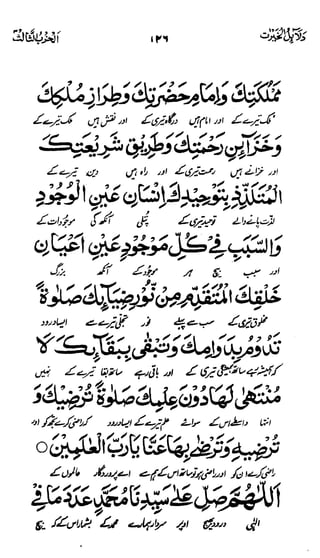 دلائل الخیرات ١٢٦ الحزب الثالث
مَمْلَكَتِكَ وَاِمَامِ حَضْرَتِكَ وَطِرَازِ مُلْكِكَ
ملک تیرے کے اور امام ہیں درگاہ تیری کے اور نقش ہیں ملک تیرے کے
وَخَزَآئِنِ رَحْمَتِكَ وَطَرِيْقِ شَرِيْعَتِكَ
اور خزانے ہیں رحمت تیری کے اور راہ ہیں دین تیرے کے
الْمُتَلَذِّذِ بِتَوْحِيْدِكَ اِنْسَانِ عَيْنِ الْوُجُوْدِ
لذت پانے والے توحید تیری کے پتلی آنکھ کی موجودات کے
وَالسَّبَبِ فِيْ كُلِّ مَوْجُوْدٍ عَيْنِ اَعْيَانِ
اور سبب بیچ ہر موجود کے آنکھ بزرگ
خَلْقِكَ الْمُتَقَدِّمِ مِنْ نُّوْرِ ضِيَآئِكَ صَلٰوةً
مخلوق تیری کے سب سے پہلے نور تجلی تیرے سے ایسا درود
تَدُوْمُ بِدَوَامِكَ وَتَبْقٰى بِبَقَآئِكَ لَا
کہ ہمیشہ رہے ساتھ ہمیشگی تیری کے اور باقی رہے ساتھ بقا تیرے کے نہیں
مُنْتَهٰى لَهَا دُوْنَ عِلْمِكَ صَلٰوةً تُرْضِيْكَ وَ
انتہا واسطے اس کے سوائے علم تیرے کے ایسا درود کہ راضی کرے تجھ کو اور
تُرْضِيْهِ وَتَرْضٰى بِهَا عَنَّا يَا رَبَّ الْعٰلَمِيْنَ ○
راضی کرے ان کو اور راضی ہو تو ساتھ اس کے ہم سے اے پروردگار عالموں کے
اَللّٰهُمَّ صَلِّ عَلٰى سَيِّدِنَا مُحَمَّدٍ عَدَدَ مَا فِيْ
الٰہی درود بھیج اوپر سردار ہمارے محمد کے بشمار اس کے کہ بیچ